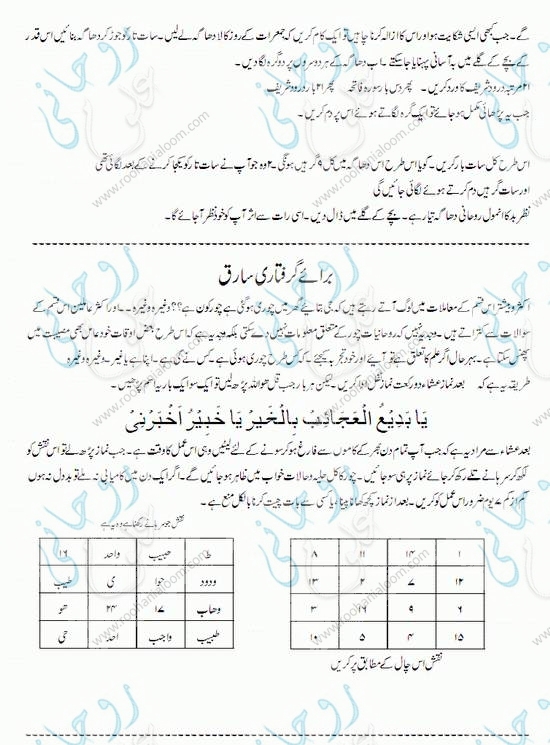 گے۔ جب کبھی ایسی شکایت ہو اور اس کا ازالہ کرنا چاہیں تو ایک کام کریں کہ جمعرات کے روز کالا دھاگہ لے لیں۔ سات تار کو جوڑ کر دھاگہ بنائیں اس قدر
کے بچے کے گلے میں بہ آسانی پہنایا جا سکے۔ اب دھاگہ کے ہر دو سروں پر دو گرہ لگا دیں۔
۲۱ مرتبہ درود شریف کا ورد کریں۔ پھر دس بار سورہ فاتحہ پھر ۲۱ بار درود شریف
جب یہ پڑھائی مکمل ہو جائے تو ایک گرہ لگاتے ہوئے اس پر دم کریں۔
اس طرح کل سات بار کریں۔ گویا اس طرح اس دھاگہ میں کل ۹ گرہیں ہونگی۔ ۲ وہ جو آپ نے سات تار کو یکجا کرنے کے بعد لگائی تھی
اور سات گرہیں دم کرتے ہوئے لگائی جائیں گی
نظر بد کا انمول روحانی دھاگہ تیار ہے۔ بچے کے گلے میں ڈال دیں۔ اسی رات سے اثر آپ کو خود نظر آ جائے گا۔
برائے گرفتاری سارق
اکثر و بیشتر اس قسم کے معاملات میں لوگ آتے رہتے ہیں کہ جی بتائیے گھر میں چوری ہو گئی ہے چور کون ہے؟؟ وغیرہ وغیرہ۔۔ اور اکثر عاملین اس قسم کے
سوالات سے کتراتے ہیں۔ وجہ یہ نہیں کہ روحانیات چور کے متعلق معلومات نہیں دے سکتی بلکہ وجہ یہ ہے کہ اس طرح بعض اوقات خود عامل بھی مصیبت میں
پھنس سکتا ہے۔ بہر حال اگر ہم کا تعلق ہے تو آیئے اور خود تجربہ کیجئے کہ کس طرح چوری ہوئی ہے کس نے کی ہے۔ اپنا ہے یا غیر۔ وغیرہ وغیرہ
طریقہ یہ ہے کہ بعد نماز عشاء دو رکعت نماز نفل ادا کریں۔ لیکن ہر بار جب قل ھو اللہ پڑھ لیں تو ایک سو ایک بار یہ اسم پڑھیں۔
يَا بَدِيْعُ الْعَجَائِبْ بِالْخَيْرْ يَا خَبِيْرُ اَخْبَرْنِيْ
بعد عشاء سے مراد یہ ہے کہ جب آپ تمام دن بھر کے کاموں سے فارغ ہو کر سونے کے لئے لیٹیں وہی اس عمل کا وقت ہے۔ جب نماز پڑھ لے تو اس نقش کو
لکھ کر سرہانے تلے رکھ کر جائے نماز پر ہی سو جائیں۔ چور کا کل حلیہ و حالات خواب میں ظاہر ہو جائیں گے۔ اگر ایک دن میں کامیابی نہ ملے تو بد دل نہ ہوں
کم از کم ۷ یوم ضرور اس عمل کو کریں۔ بعد از نماز کچھ کھانا پینا یا کسی سے بات چیت کرنا بالکل منع ہے۔
نقش جو سرہانے رکھنا ہے وہ یہ ہے
ط ھبیب واحد ۱۶
ودود حوا ی طیب
وھاب ۱۷ ۲۴ ھو
طبیب واجب احد حی
۱ ۱۴ ۱۱ ۸
۱۲ ۷ ۲ ۱۳
۶ ۹ ۱۶ ۳
۱۵ ۴ ۵ ۱۰
نقش اس چال کے مطابق پر کریں
روحانی علوم
www.roohanialoom.com